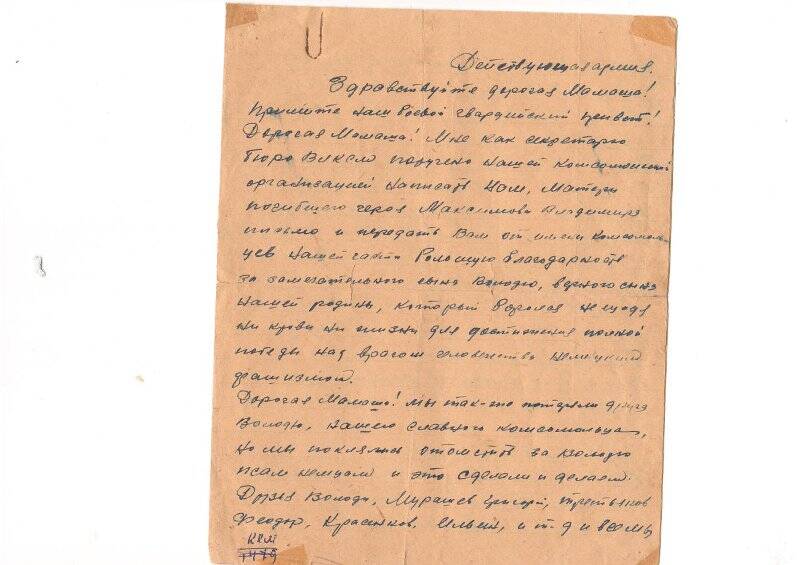 Действующая армия.
Здравствуйте дорогая Мамаша!
Примите наш боевой гвардейский привет!
Дорогая Мамаша! Мне как секретарю
бюро ВЛКСМ поручено нашей комсомольской
организацией написать Вам, матери
погибшего героя Максимова Владимира
письмо и передать Вам от имени комсомоль-
цев нашей части большую благодарность
за замечательного сына Володю, верного сына
нашей родины, который боролся не щадя
ни крови ни жизни для достижения полной
победы над врагом человечества немецким
фашизмом.
Дорогая Мамаша! мы так-то потеряли друга
Володю, нашего славного комсомольца,
но мы поклялись отомстить за Володю
псам немцам и это сделали и делаем.
Друзья Володи, Мурашев Григорий, Третьяков
Феодор, Красиков, Ильин, и т.д и все мы
КВМ